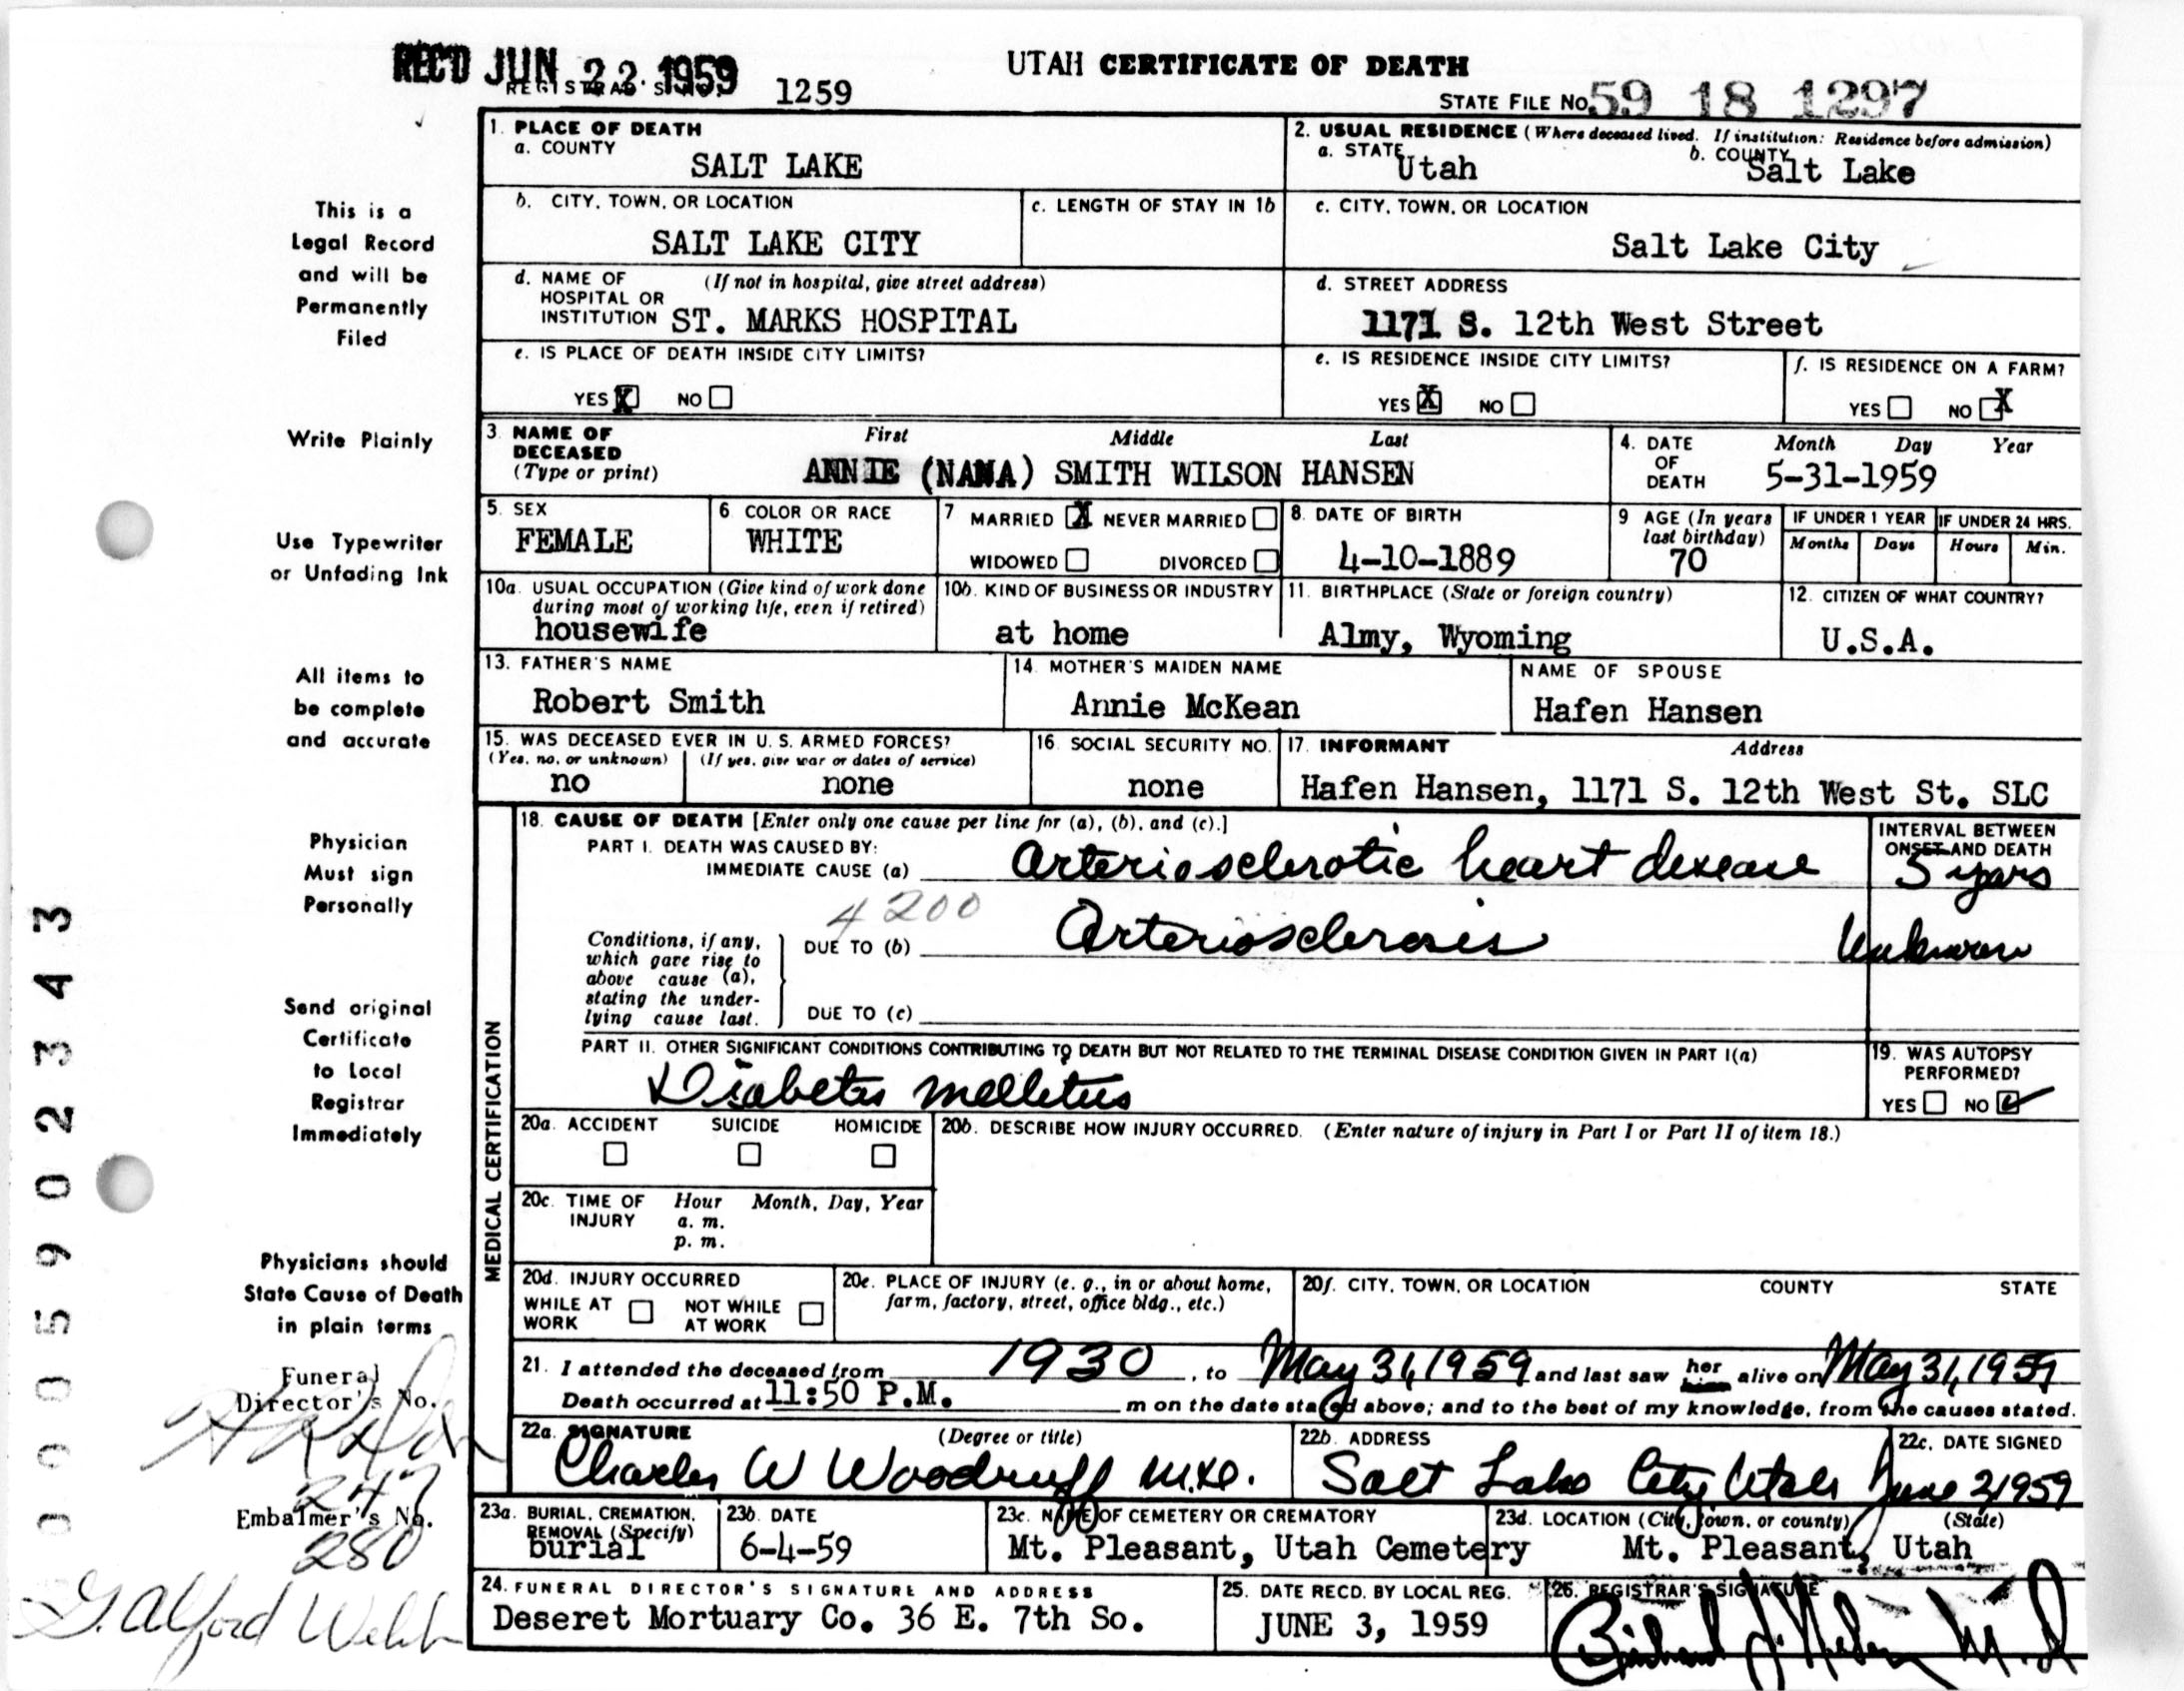 REC'D JUN 22 1959
REGISTRAR'S NO. 1259
UTAH CERTIFICATE OF DEATH
STATE FILE NO. 59 18 1297
1. PLACE OF DEATH
a. COUNTY
SALT LAKE
2. USUAL RESIDENCE (Where deceased lived. If institution: Residence before admission)
a. STATE Utah b. COUNTY Salt Lake
b. CITY, TOWN, OR LOCATION
SALT LAKE CITY
c. LENGTH OF STAY IN 1b
c. CITY, TOWN, OR LOCATION
Salt Lake City
d. NAME OF HOSPITAL OR INSTITUTION (If not in hospital, give street address)
ST. MARKS HOSPITAL
d. STREET ADDRESS
1171 S. 12th West Street
e. IS PLACE OF DEATH INSIDE CITY LIMITS?
YES X NO
e. IS RESIDENCE INSIDE CITY LIMITS?
YES X NO
f. IS RESIDENCE ON A FARM?
YES NO X
3. NAME OF DECEASED (Type or print)
First Middle Last
ANNIE (NANA) SMITH WILSON HANSEN
4. DATE OF DEATH
Month Day Year
5-31-1959
5. SEX
FEMALE
6 COLOR OR RACE
WHITE
7 MARRIED X NEVER MARRIED
WIDOWED DIVORCED
8. DATE OF BIRTH
4-10-1889
9 AGE (In years last birthday)
70
IF UNDER 1 YEAR
Months Days
IF UNDER 24 HRS.
Hours Min.
10a. USUAL OCCUPATION (Give kind of work done during most of working life, even if retired)
housewife
10b. KIND OF BUSINESS OR INDUSTRY
at home
11. BIRTHPLACE (State or foreign country)
Almy, Wyoming
12. CITIZEN OF WHAT COUNTRY?
U.S.A.
13. FATHER'S NAME
Robert Smith
14. MOTHER'S MAIDEN NAME
Annie McKean
NAME OF SPOUSE
Hafen Hansen
15. WAS DECEASED EVER IN U. S. ARMED FORCES?
(Yes, no, or unknown) (If yes, give war or dates of service)
no none
16. SOCIAL SECURITY NO.
none
17. INFORMANT Address
Hafen Hansen, 1171 S. 12th West St. SLC
MEDICAL CERTIFICATION
18. CAUSE OF DEATH [Enter only one cause per line for (a), (b), and (c).]
PART I. DEATH WAS CAUSED BY:
IMMEDIATE CAUSE (a) Arteriosclerotic heart disease
INTERVAL BETWEEN ONSET AND DEATH
5 years
4200
Conditions, if any, which gave rise to above cause (a), stating the underlying cause last.
DUE TO (b) Arteriosclerosis Unknown
DUE TO (c)
PART II. OTHER SIGNIFICANT CONDITIONS CONTRIBUTING TO DEATH BUT NOT RELATED TO THE TERMINAL DISEASE CONDITION GIVEN IN PART I(a)
Diabetes mellitus
19. WAS AUTOPSY PERFORMED?
YES NO ✓
20a. ACCIDENT SUICIDE HOMICIDE
20b. DESCRIBE HOW INJURY OCCURRED. (Enter nature of injury in Part I or Part II of item 18.)
20c. TIME OF INJURY Hour Month, Day, Year
a. m.
p. m.
20d. INJURY OCCURRED
WHILE AT WORK NOT WHILE AT WORK
20e. PLACE OF INJURY (e. g., in or about home, farm, factory, street, office bldg., etc.)
20f. CITY, TOWN, OR LOCATION COUNTY STATE
21. I attended the deceased from 1930, to May 31, 1959 and last saw her him alive on May 31, 1959
Death occurred at 11:50 P.M. m on the date stated above; and to the best of my knowledge, from the causes stated.
22a. SIGNATURE (Degree or title)
Charles W Woodruff M.D.
22b. ADDRESS
Salt Lake City Utah
22c. DATE SIGNED
June 2, 1959
23a. BURIAL, CREMATION, REMOVAL (Specify)
burial
23b. DATE
6-4-59
23c. NAME OF CEMETERY OR CREMATORY
Mt. Pleasant, Utah Cemetery
23d. LOCATION (City, town, or county) (State)
Mt. Pleasant, Utah
24. FUNERAL DIRECTOR'S SIGNATURE AND ADDRESS
Deseret Mortuary Co. 36 E. 7th So.
25. DATE RECD. BY LOCAL REG.
JUNE 3, 1959
26. REGISTRAR'S SIGNATURE
This is a
Legal Record
and will be
Permanently
Filed
Write Plainly
Use Typewriter
or Unfading Ink
All items to
be complete
and accurate
Physician
Must sign
Personally
Send original
Certificate
to Local
Registrar
Immediately
Physicians should
State Cause of Death
in plain terms
Funeral
Director's No.
247
Embalmer's No.
280
G. Alford Webb
0005902343